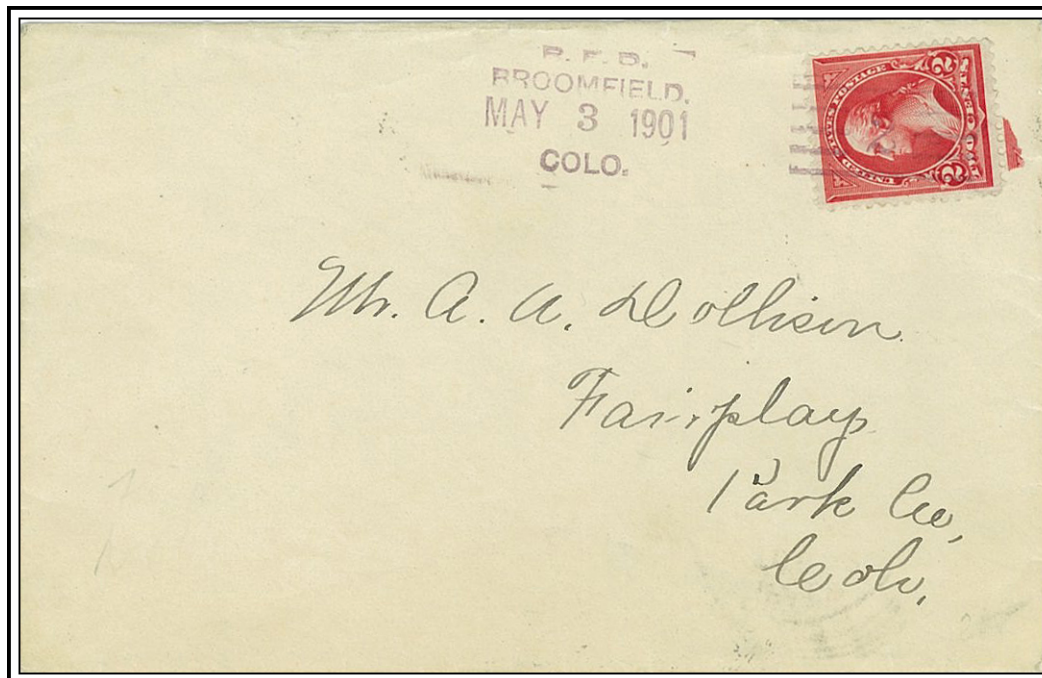 R. F. D.
BROOMFIELD.
MAY 3 1901
COLO.
UNITED STATES POSTAGE
2 TWO CENTS 2
Mr. A. A. Dollison
Fairplay
Park Co,
Colo,